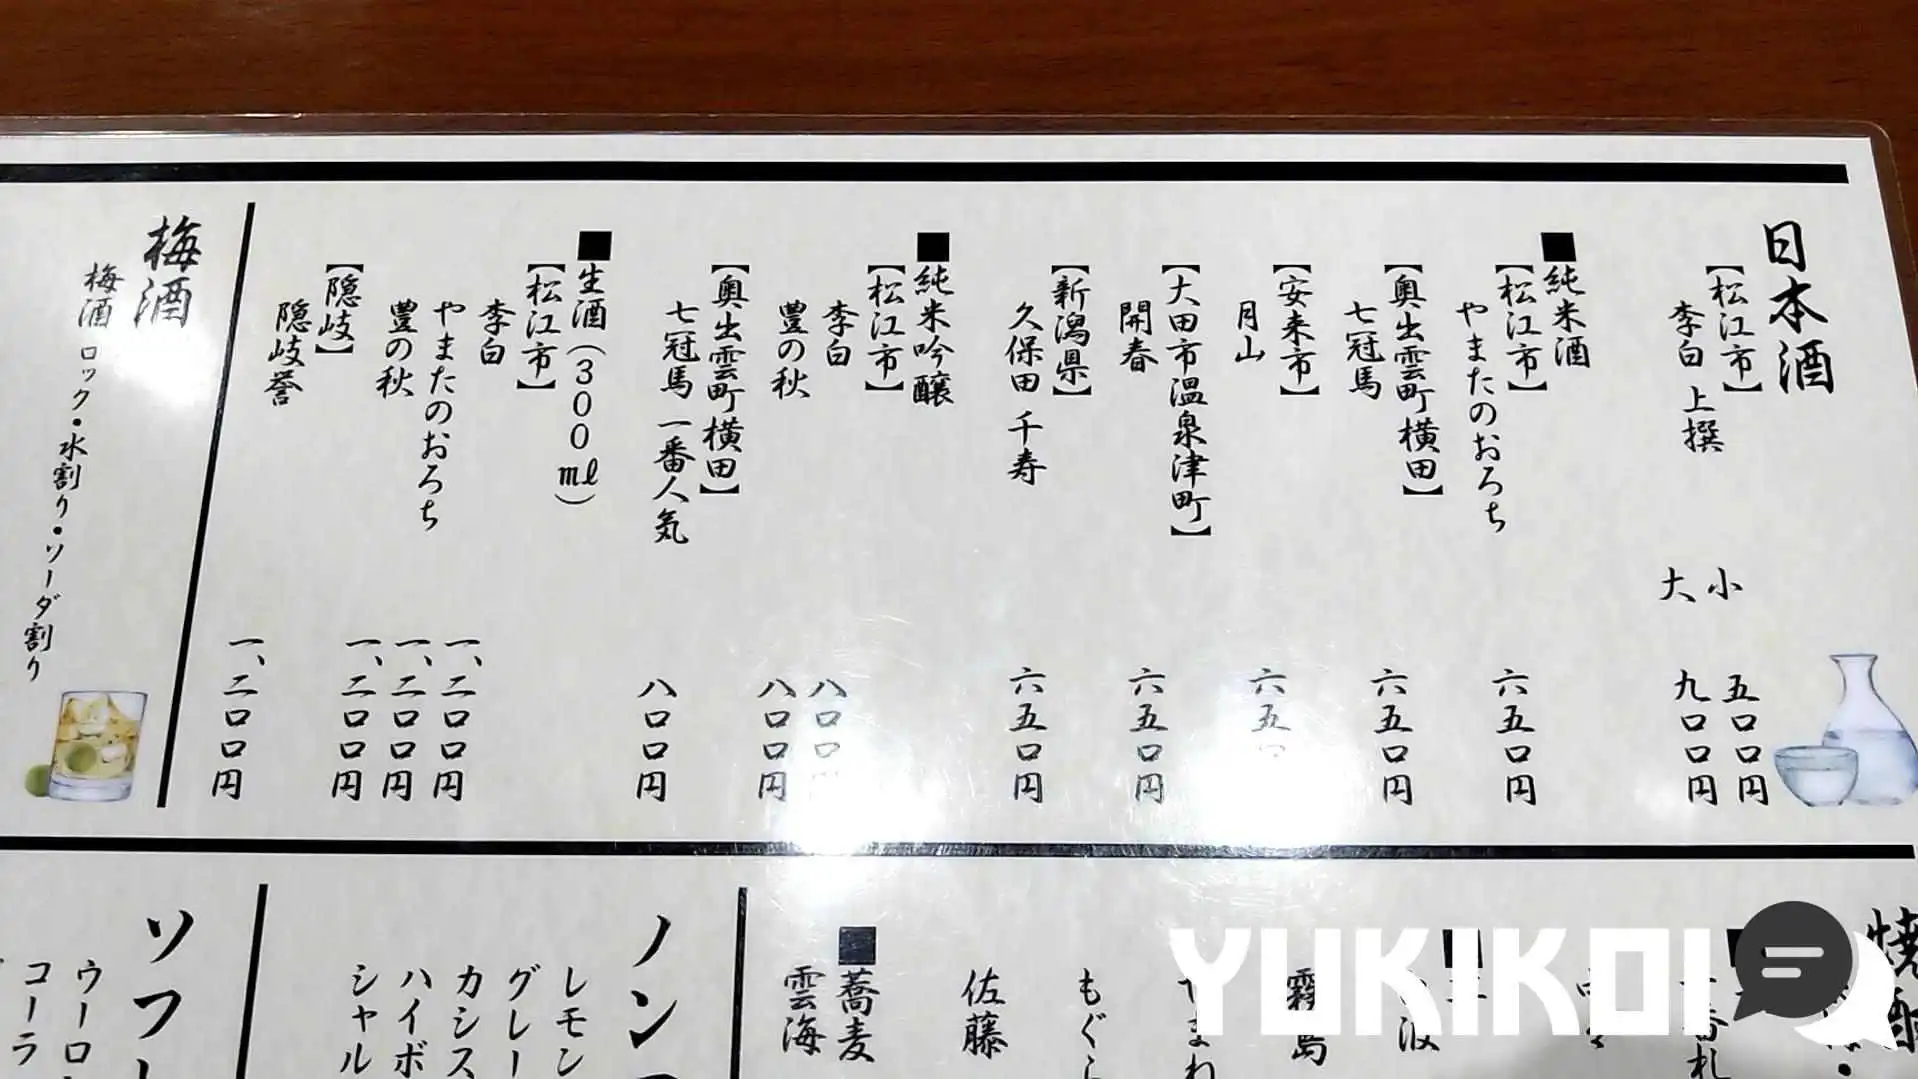 日本酒
【松江市】
李白 上撰
小 五〇〇円
大 九〇〇円
■純米酒
【松江市】
やまたのおろち 六五〇円
【奥出雲町横田】
七冠馬 六五〇円
【安来市】
月山 六五〇
【大田市温泉津町】
開春 六五〇円
【新潟県】
久保田 千寿 六五〇円
■純米吟醸
【松江市】
李白 八〇〇円
豊の秋 八〇〇円
【奥出雲町横田】
七冠馬 一番人気 八〇〇円
■生酒(300㎖)
【松江市】
李白 一、二〇〇円
やまたのおろち 一、二〇〇円
豊の秋 一、二〇〇円
【隠岐】
隠岐誉 一、二〇〇円
梅酒
梅酒 ロック・水割り・ソーダ割り
霧島
もぐら
佐藤
■蕎麦
雲海
ノン
レモン
グレー
カシス
ハイボ
シャル
ソフ
ウーロ
コーラ
YUKIKOI